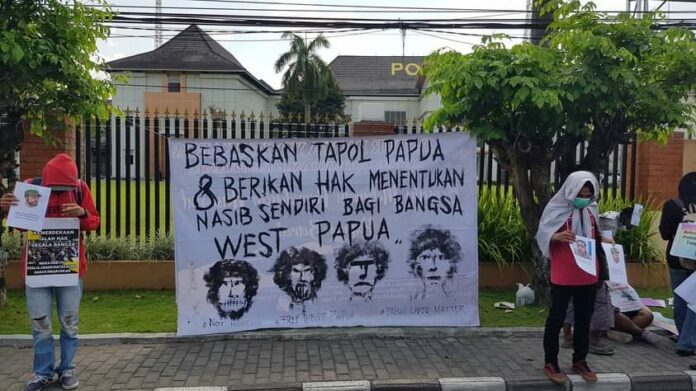 PO
BEBASKAN TAPOL PAPUA
& BERIKAN HAK MENENTUKAN
NASIB SENDIRI BAGI BANGSA
WEST PAPUA
# FREE WEST PAPUA
# PAPUA LIVES MATTER
KEMERDEKAAN
IALAH HAK
SEGALA BANGSA